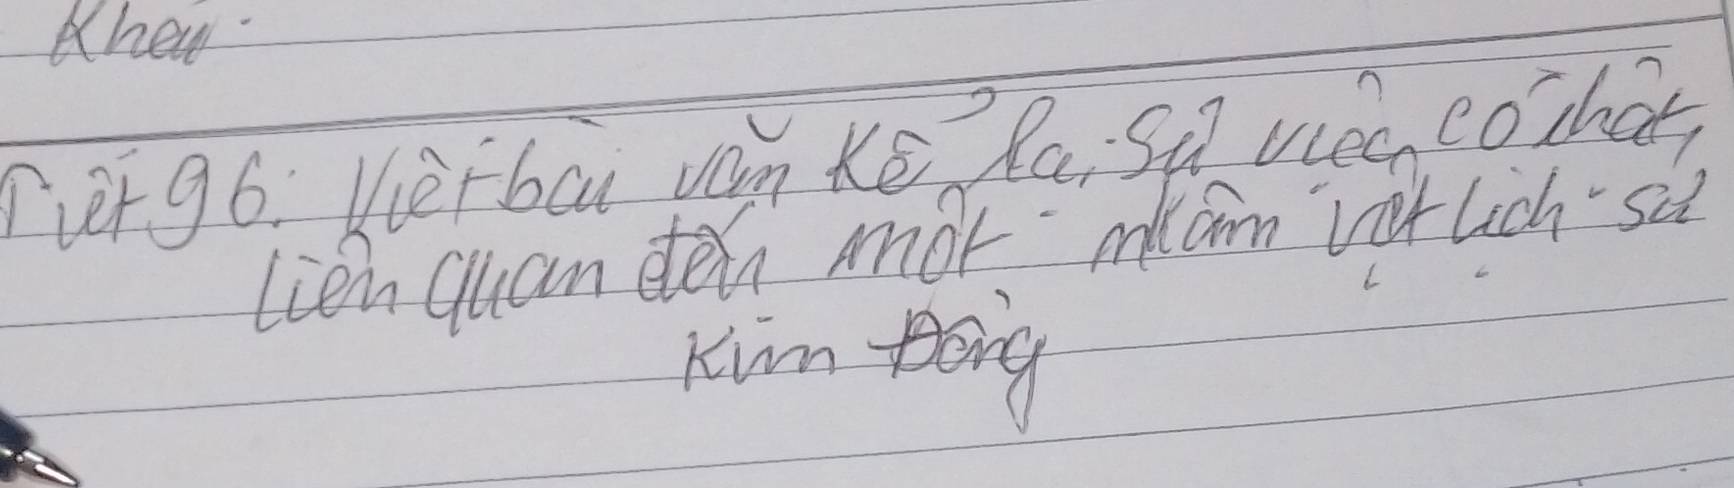 Khen
Tiết 96: Viết bài văn kể lại sự việc có thật,
liên quan đến một nhâm vật lịch sử
Kim Đồng